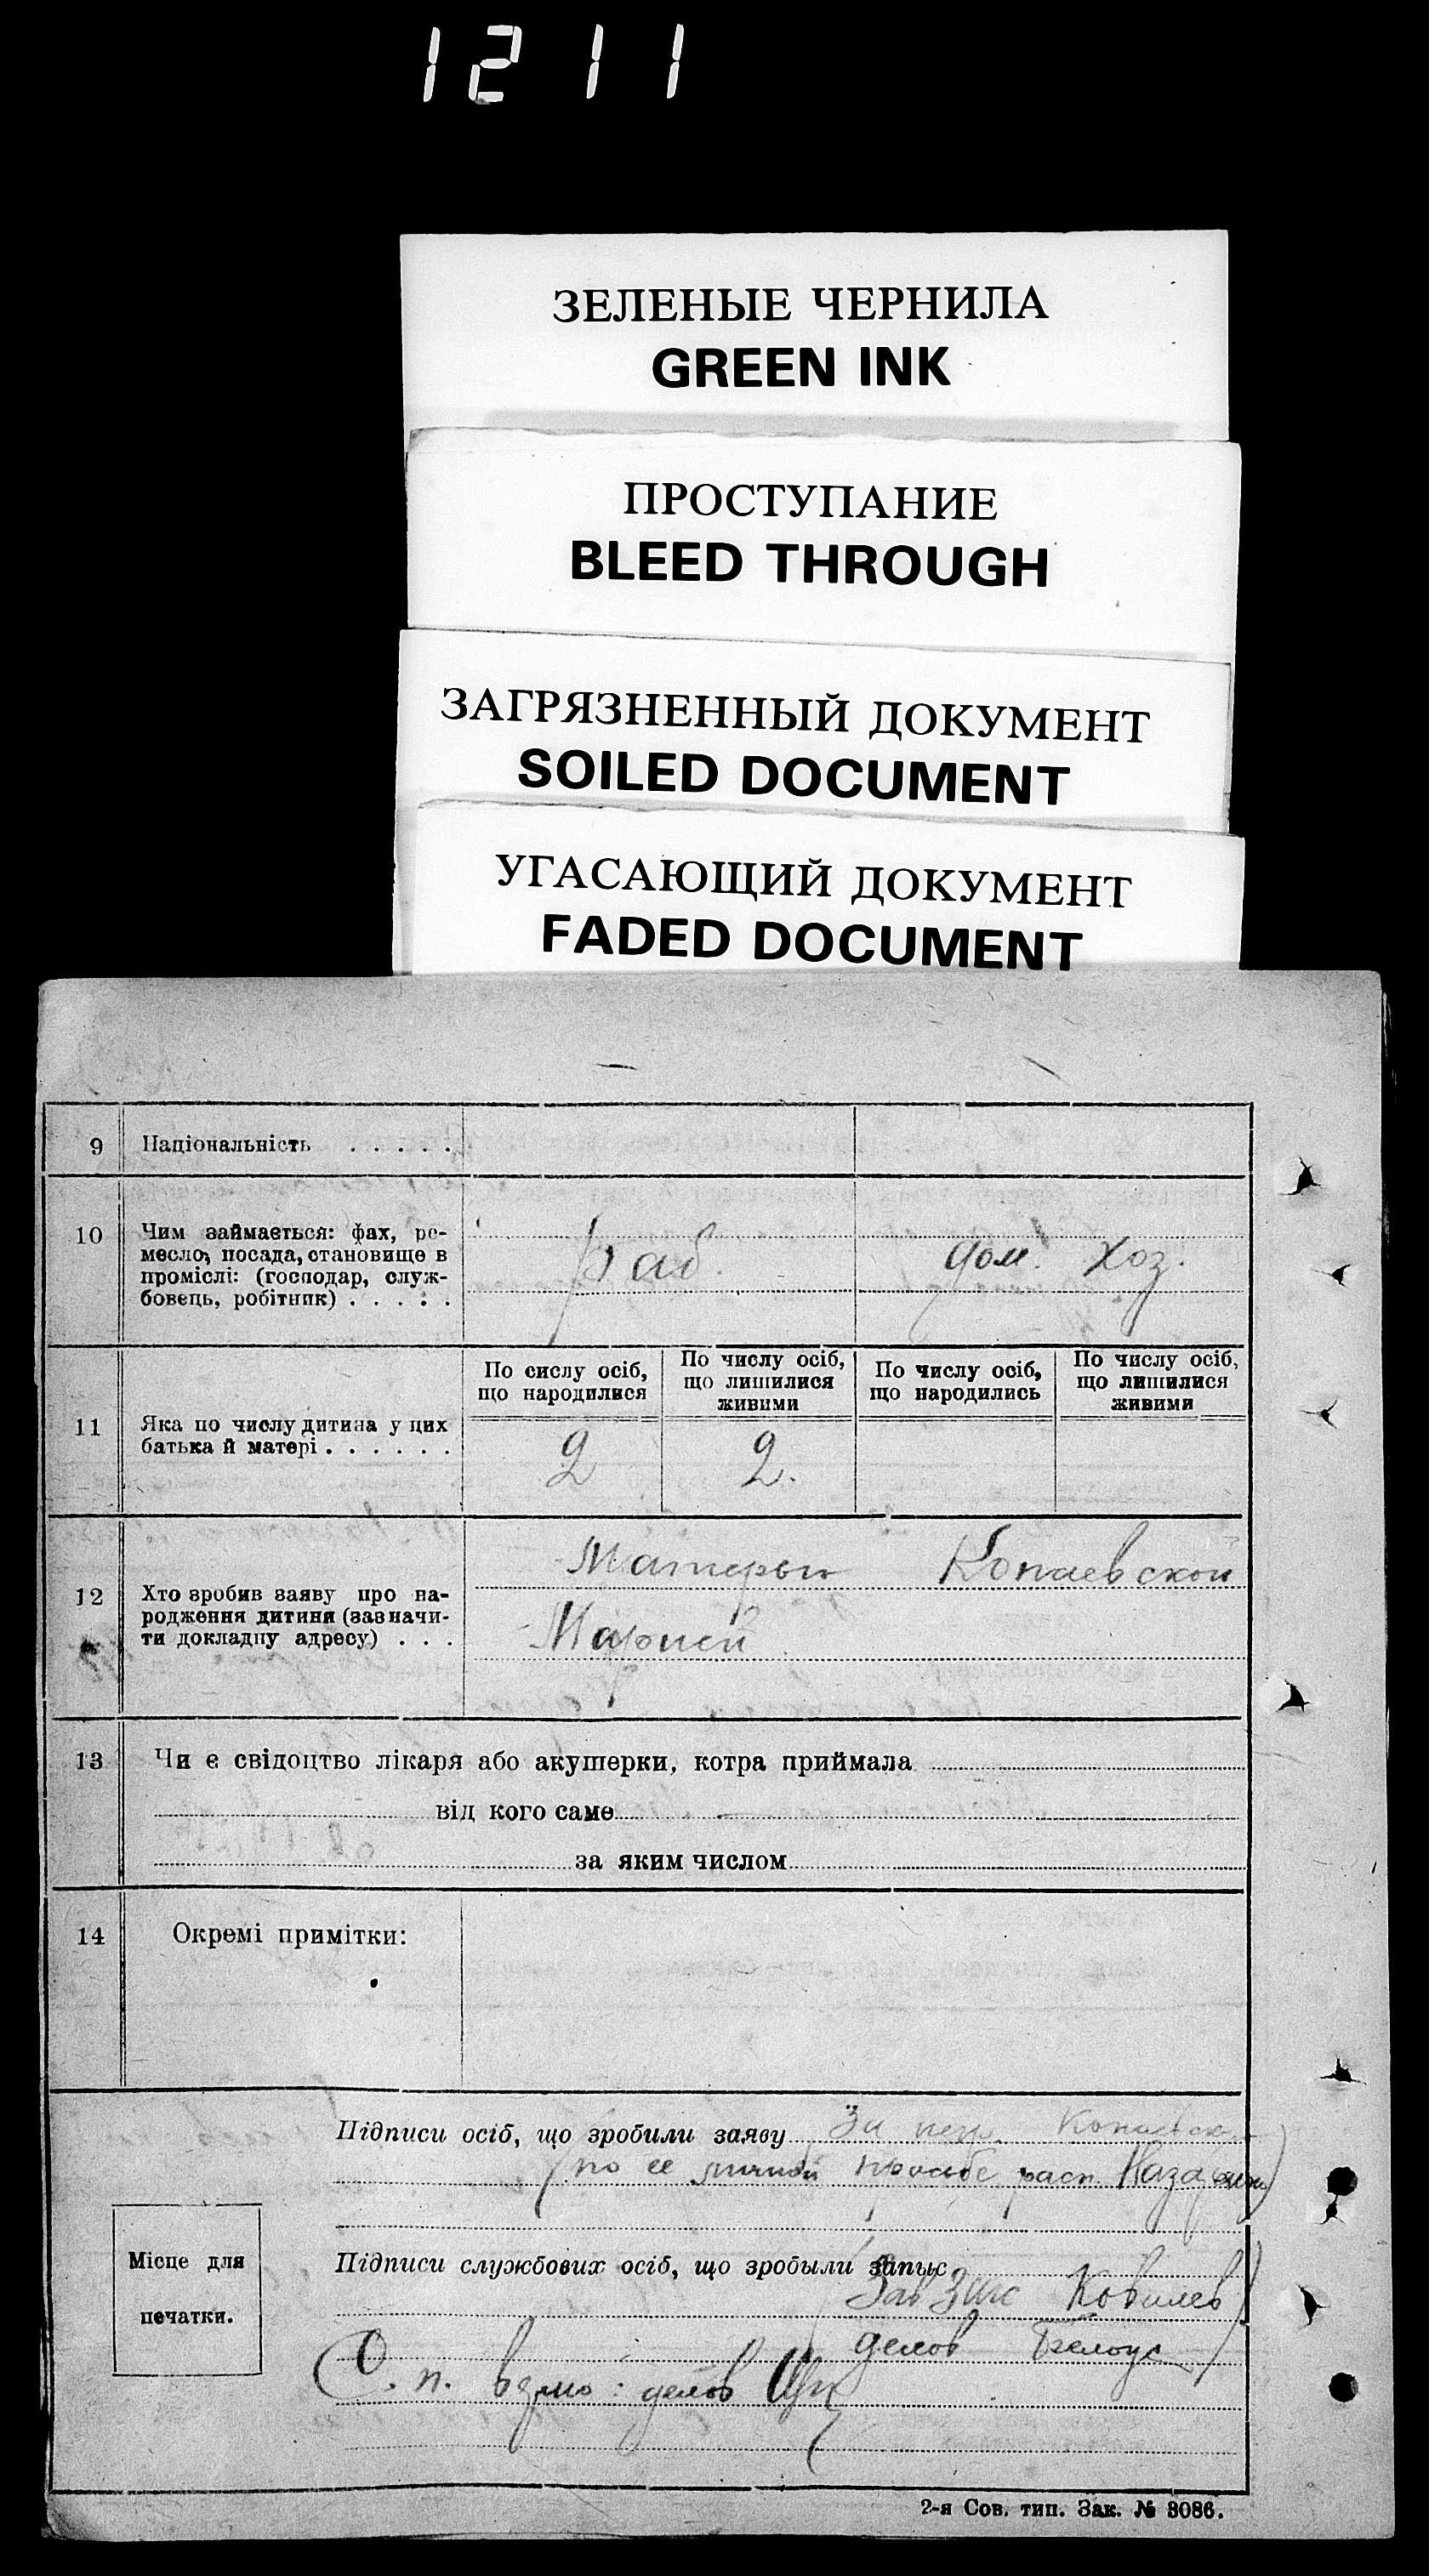 1211
ЗЕЛЕНЫЕ ЧЕРНИЛА
GREEN INK
ПРОСТУПАНИЕ
BLEED THROUGH
ЗАГРЯЗНЕННЫЙ ДОКУМЕНТ
SOILED DOCUMENT
УГАСАЮЩИЙ ДОКУМЕНТ
FADED DOCUMENT
9 Національність . . . . .
10 Чим займається: фах, ре-
месло, посада, становище в
проміслі: (господар, служ-
бовець, робітник) . . . . .
раб. дом. хоз.
11 Яка по числу дитина у цих
батька й матері . . . . . .
По сислу осіб,
що народилися
По числу осіб,
що лишилися
живими
По числу осіб,
що народились
По числу осіб,
що лишилися
живими
2 2.
12 Хто зробив заяву про на-
родження дитини (зазначи-
ти докладну адресу) . . .
Матерью Копаевской
Марией
13 Чи є свідоцтво лікаря або акушерки, котра приймала
від кого саме
за яким числом
14 Окремі примітки:
Підписи осіб, що зробили заяву За негр. Копаевск
по ее личной просьбе расп.
Місце для
печатки.
Підписи службових осіб, що зробыли запыс
Зав Загс
делов Белоус
С. п. верно: делов
2-я Сов. тип. Зак. № 3086.